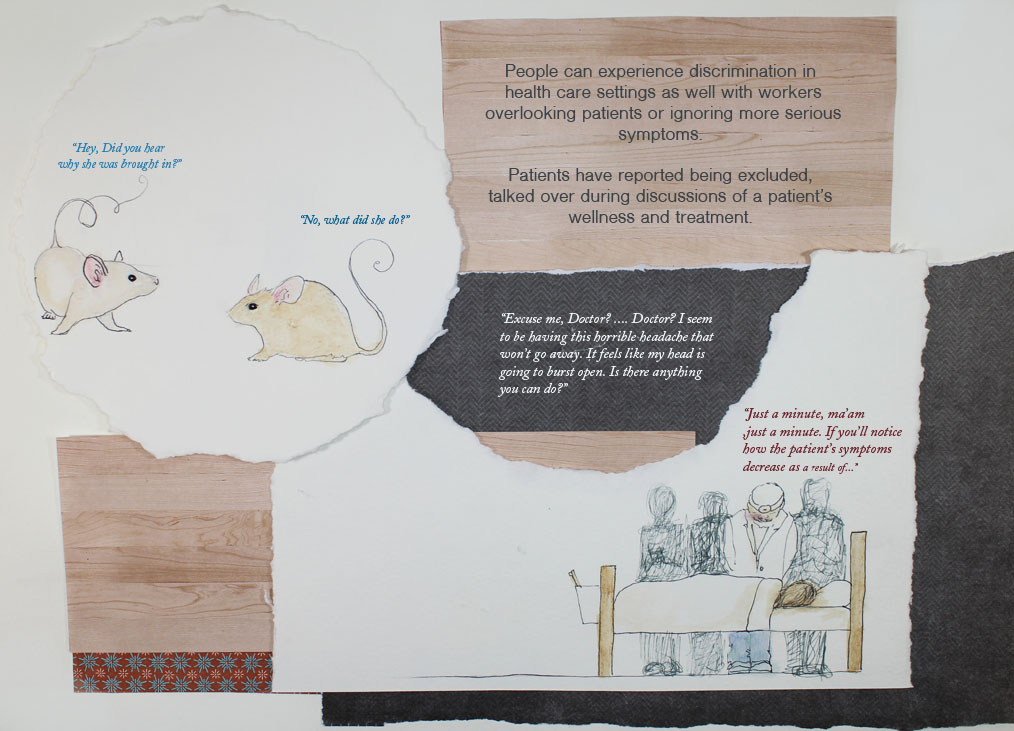 People can experience discrimination in
health care settings as well with workers
overlooking patients or ignoring more serious
symptoms.
Patients have reported being excluded,
talked over during discussions of a patient's
wellness and treatment.
"Hey, Did you hear
why she was brought in?"
"No, what did she do?"
"Excuse me, Doctor? .... Doctor? I seem
to be having this horrible headache that
won't go away. It feels like my head is
going to burst open. Is there anything
you can do?"
"Just a minute, ma'am
,just a minute. If you'll notice
how the patient's symptoms
decrease as a result of..."